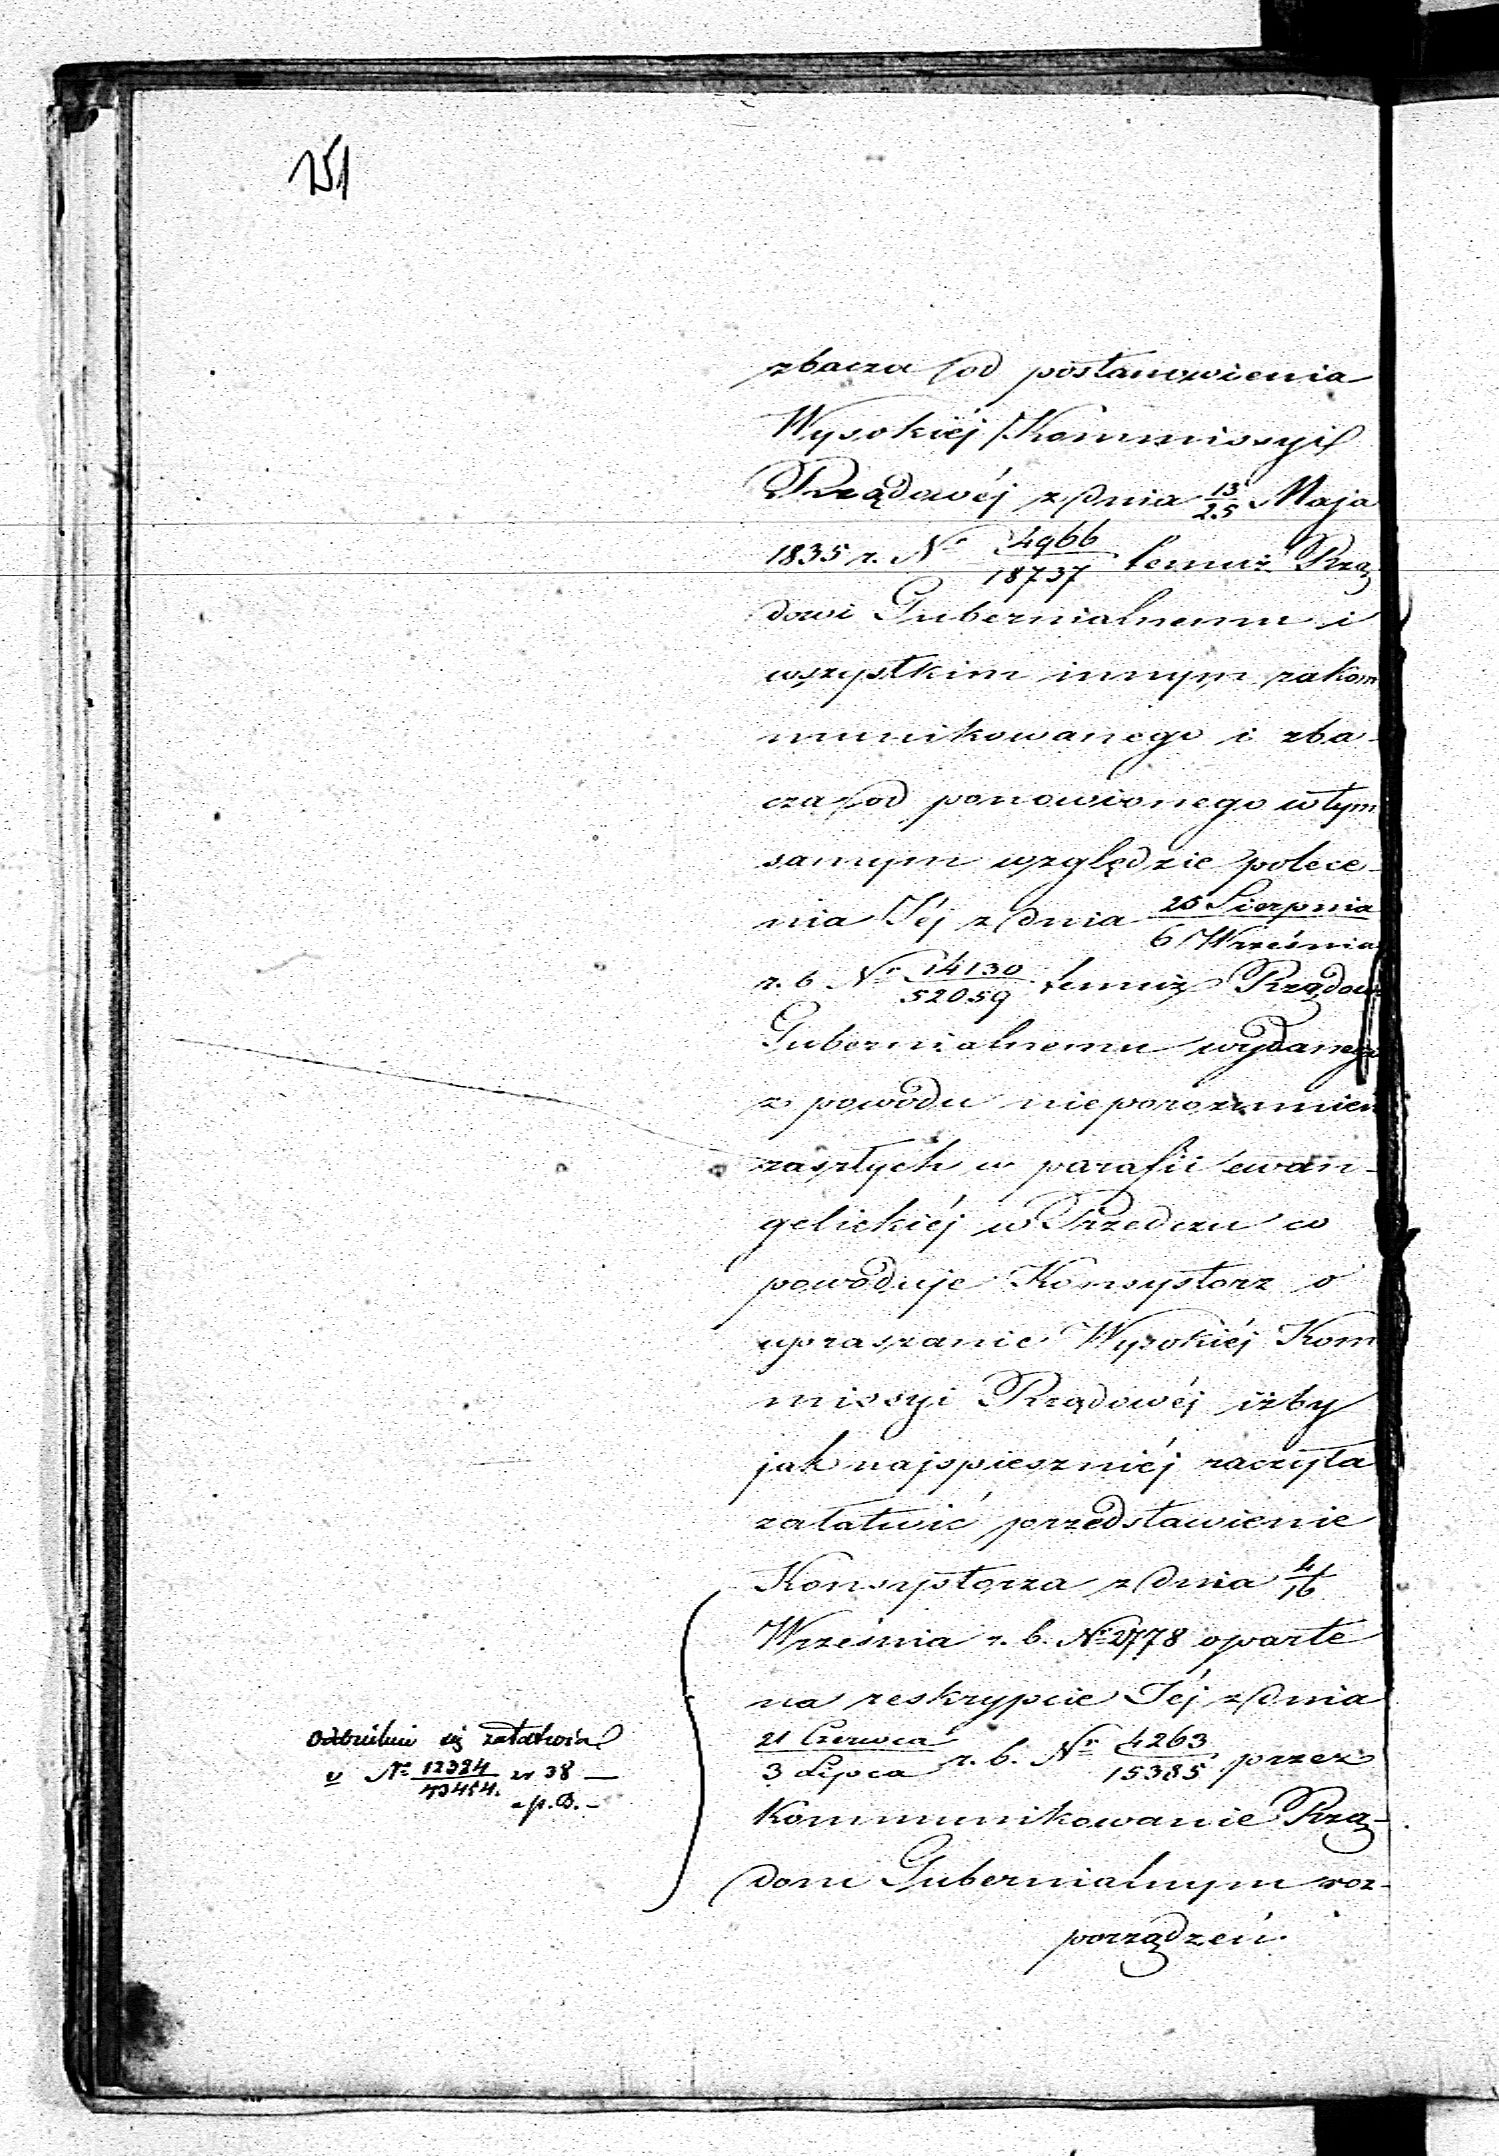 251
zbacza od postanowienia
Wysokiéj Kommissyi
Rządowéj z dnia 13/25 Maja
1835 r. Nr 4966/18737 temuż Rzą
dowi Gubernialnemu i
wszystkim innym zakom
munikowanego i zba-
cza od ponowionego w tym
samym względzie polece-
nia Jéj z dnia 25 Sierpnia/6 Września
r. b Nr 14130/52059 temuż Rządowi
Gubernialnemu wydanego
z powodu nieporozumień
zaszłych w parafii ewan-
gelickiéj w Przedczu co
powoduje Konsystorz o
upraszanie Wysokiéj Kom
missyi Rządowéj iżby
jak najspieszniéj raczyła
załatwić przedstawienie
Konsystorza z dnia 4/16
Września r. b. No 2778 oparte
na reskrypcie Jéj z dnia
21 Czerwca/3 Lipca r. b. Nr 4263/15385 przez
Kommunikowanie Rzą-
dom Gubernialnym roz-
porządzeń.
się załatwia
v No 12384/43454. 38 —